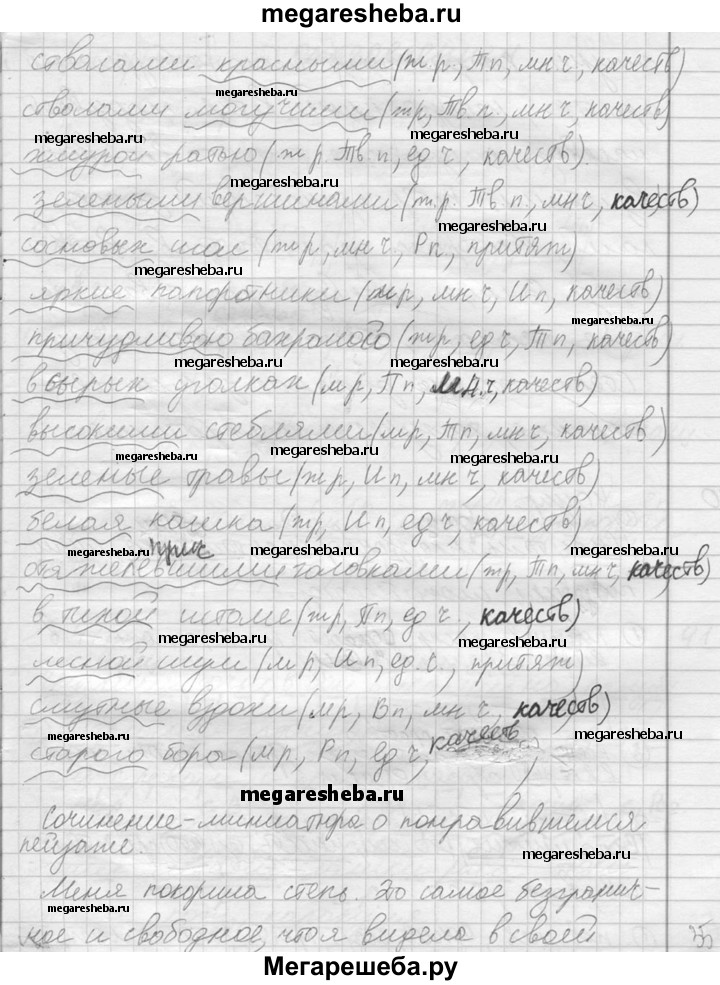 megaresheba.ru
стволами красными (ж р, Тп, мн ч, качеств)
стволами могучими (ж р, Тв п, мн ч, качеств)
megaresheba.ru
megaresheba.ru
хмурой ратью (ж р. Тв п, ед ч, качеств).
megaresheba.ru
зелеными вершинами (ж.р. Тв. п., мн ч, качеств)
megaresheba.ru
сосновых игл (ж р, мн ч, Рп, притяж)
megaresheba.ru
яркие папоротники (м р, мн ч, Ип, качеств)
megaresheba.ru
причудливою бахромою (ж р, ед ч, Тп, качеств)
megaresheba.ru
megaresheba.ru
в сырых уголках (м р, Пп, мн.ч, качеств)
высокими стеблями (м р, Тп, мн ч, качеств)
megaresheba.ru
megaresheba.ru
зеленые травы (ж р, Ип, мн ч, качеств)
белая кашка (ж р, Ип, ед ч, качеств)
megaresheba.ru
прич
megaresheba.ru
отяжелевшими головками (ж р, Тп, мн ч, качеств)
megaresheba.ru
в тихой истоме (ж р, Пп, ед ч, качеств)
megaresheba.ru
лесной шум (м р, Ип, ед. ч., притяж)
megaresheba.ru
смутные вздохи (м р, Вп, мн ч, качеств)
megaresheba.ru
старого бора (м р, Рп, ед ч, качеств
megaresheba.ru
Сочинение-миниатюра о понравившемся
пейзаже.
megaresheba.ru
Меня покорила степь. Это самое безгранич-
megaresheba.ru
ное и свободное, что я видела в своей
megaresheba.ru
Мегарешеба.ру